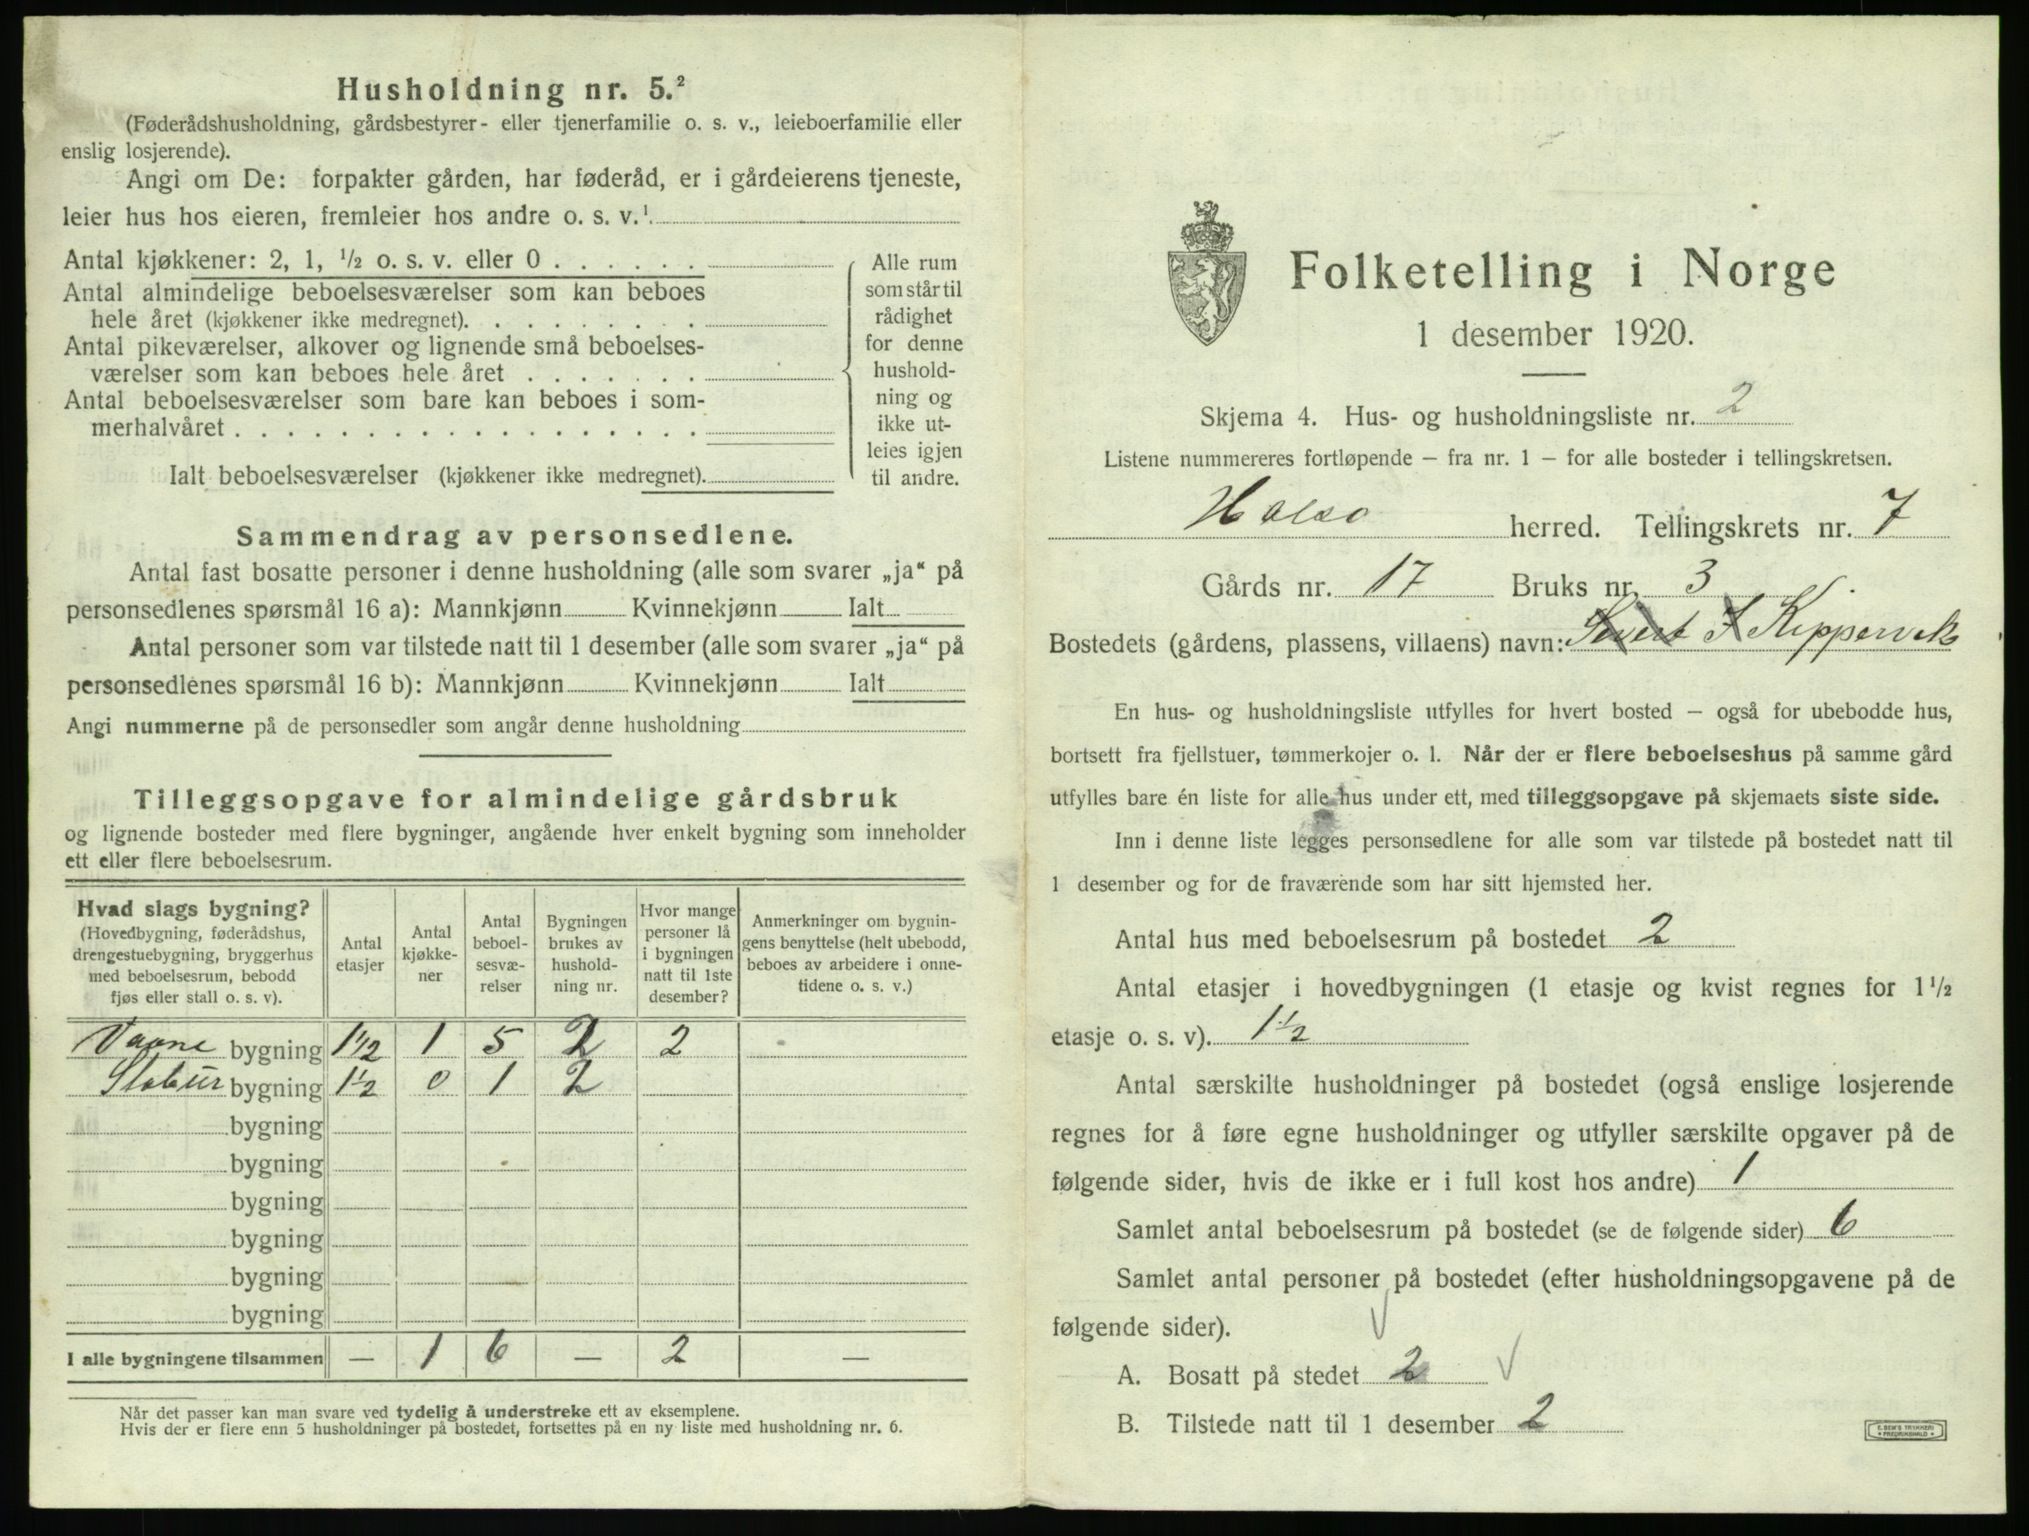 Husholdning nr. 5.²
(Føderådshusholdning, gårdsbestyrer- eller tjenerfamilie o. s. v., leieboerfamilie eller
enslig losjerende).
Angi om De: forpakter gården, har føderåd, er i gårdeierens tjeneste,
leier hus hos eieren, fremleier hos andre o. s. v.¹
Antal kjøkkener: 2, 1, ½ o. s. v. eller 0 . . . . . .
Antal almindelige beboelsesværelser som kan beboes
hele året (kjøkkener ikke medregnet). . . . . . . . .
Antal pikeværelser, alkover og lignende små beboelses-
værelser som kan beboes hele året . . . . . . .
Antal beboelsesværelser som bare kan beboes i som-
merhalvåret . . . . . . . . . . . . . . . . . .
Ialt beboelsesværelser (kjøkkener ikke medregnet).
Alle rum
som står til
rådighet
for denne
hushold-
ning og
ikke ut-
leies igjen
til andre.
Sammendrag av personsedlene.
Antal fast bosatte personer i denne husholdning (alle som svarer „ja“ på
personsedlenes spørsmål 16 a): Mannkjønn Kvinnekjønn Ialt
Antal personer som var tilstede natt til 1 desember (alle som svarer „ja“ på
personsedlenes spørsmål 16 b): Mannkjønn Kvinnekjønn Ialt
Angi nummerne på de personsedler som angår denne husholdning
Tilleggsopgave for almindelige gårdsbruk
og lignende bosteder med flere bygninger, angående hver enkelt bygning som inneholder
ett eller flere beboelsesrum.
Hvad slags bygning?
(Hovedbygning, føderådshus,
drengestuebygning, bryggerhus
med beboelsesrum, bebodd
fjøs eller stall o. s. v).
Antal
etasjer
Antal
kjøkke-
ner
Antal
beboel-
sesvæ-
relser
Bygningen
brukes av
hushold-
ning nr.
Hvor mange
personer lå
i bygningen
natt til 1ste
desember?
Anmerkninger om bygnin-
gens benyttelse (helt ubebodd,
beboes av arbeidere i onne-
tidene o. s. v.)
Vaane bygning 1½ 1 5 2 2
Stabur bygning 1½ 0 1 2
bygning
bygning
bygning
bygning
bygning
bygning
I alle bygningene tilsammen — 1 6 — 2 —
Når det passer kan man svare ved tydelig å understreke ett av eksemplene.
Hvis der er flere enn 5 husholdninger på bostedet, fortsettes på en ny liste med husholdning nr. 6.
Folketelling i Norge
1 desember 1920.
Skjema 4. Hus- og husholdningsliste nr. 2
Listene nummereres fortløpende – fra nr. 1 – for alle bosteder i tellingskretsen.
Halsa herred. Tellingskrets nr. 7
Gårds nr. 17 Bruks nr. 3
Bostedets (gårdens, plassens, villaens) navn: Sivert S Kippervik
En hus- og husholdningsliste utfylles for hvert bosted – også for ubebodde hus,
bortsett fra fjellstuer, tømmerkojer o. l. Når der er flere beboelseshus på samme gård
utfylles bare én liste for alle hus under ett, med tilleggsopgave på skjemaets siste side.
Inn i denne liste legges personsedlene for alle som var tilstede på bostedet natt til
1 desember og for de fraværende som har sitt hjemsted her.
Antal hus med beboelsesrum på bostedet 2
Antal etasjer i hovedbygningen (1 etasje og kvist regnes for 1½
etasje o. s. v). 1½
Antal særskilte husholdninger på bostedet (også enslige losjerende
regnes for å føre egne husholdninger og utfyller særskilte opgaver på de
følgende sider, hvis de ikke er i full kost hos andre) 1
Samlet antal beboelsesrum på bostedet (se de følgende sider) 6
Samlet antal personer på bostedet (efter husholdningsopgavene på de
følgende sider).
A. Bosatt på stedet 2
B. Tilstede natt til 1 desember 2
E. SEM'S TRYKKERI
FREDRIKSHALD